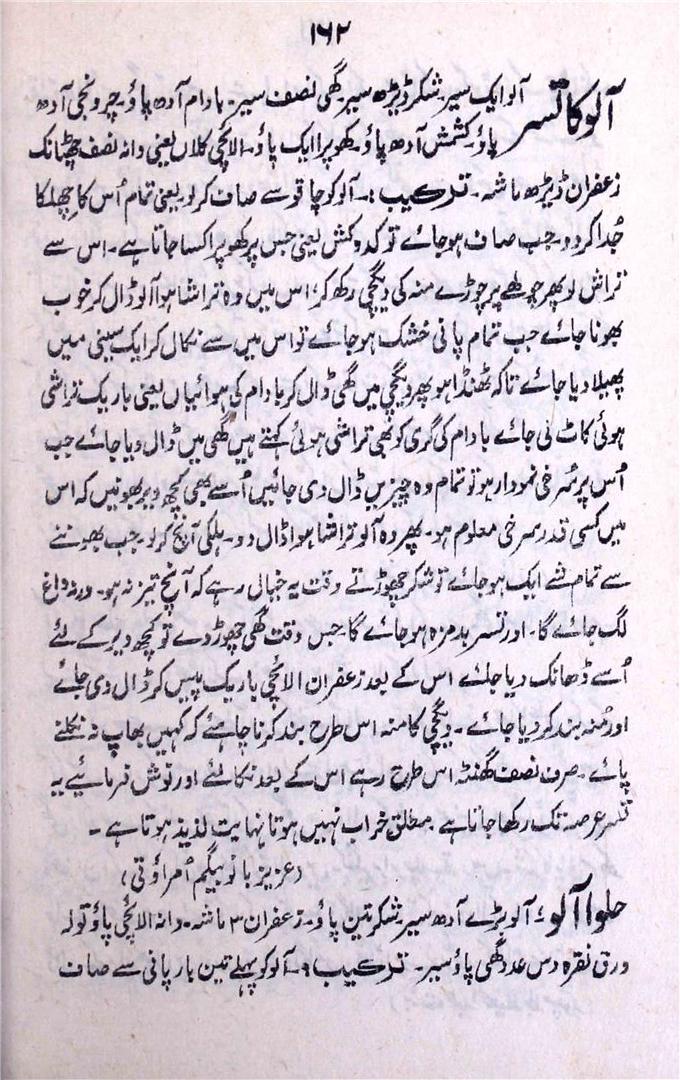 ۱۶۲
آلو کا تسر آلو ایک سیر۔ شکر ڈیڑھ سیر۔ گھی نصف سیر۔ بادام آدھ پاؤ۔ چرونجی آدھ
پاؤ۔ کشمش آدھ پاؤ۔ کھوپرا ایک پاؤ۔ الائچی کلاں یعنی دانہ نصف چھٹانک
زعفران ڈیڑھ ماشہ۔ ترکیب:۔ آلو کو چاقو سے صاف کر لو۔ یعنی تمام اُس کا چھلکا
جُدا کر دو۔ جب صاف ہو جائے تو کدو کش یعنی جس پر کھوپرا کسا جاتا ہے۔ اس سے
تراش لو پھر چولھے پر چوڑے منہ کی دیگچی رکھ کر، اس میں وہ تراشا ہوا آلو ڈال کر خوب
بھونا جائے جب تمام پانی خشک ہو جائے تو اس میں سے نکال کر ایک سینی میں
پھیلا دیا جائے تاکہ ٹھنڈا ہو پھر دیگچی میں گھی ڈال کر بادام کی ہوائیاں یعنی باریک تراشی
ہوئی کاٹ لی جائے بادام کی گری کو بھی تراشی ہوئی کہتے ہیں گھی میں ڈال دیا جائے جب
اُس پر سُرخی نمودار ہو تو تمام وہ چیزیں ڈال دی جائیں اُسے بھی کچھ دیر بھونیں کہ اس
میں کسی قدر سرخی معلوم ہو۔ پھر وہ آلو تراشا ہوا ڈال دو۔ ہلکی آنچ کر لو۔ جب بھوننے
سے تمام شے ایک ہو جائے تو شکر چھوڑتے وقت یہ خیال رہے کہ آنچ تیز نہ ہو۔ ورنہ داغ
لگ جائے گا۔ اور تسر بدمزہ ہو جائے گا۔ جس وقت گھی چھوڑ دے تو کچھ دیر کے لئے
اُسے ڈھانک دیا جائے اس کے بعد زعفران الائچی باریک پیس کر ڈال دی جائے
اور مُنہ بند کر دیا جائے۔ دیگچی کا منہ اس طرح بند کرنا چاہئے کہ کہیں بھاپ نہ نکلنے
پائے۔ صرف نصف گھنٹہ اس طرح رہے اس کے بعد نکالئے اور نوش فرمائیے یہ
تسر عرصہ تک رکھا جاتا ہے مطلق خراب نہیں ہوتا نہایت لذیذ ہوتا ہے۔
(عزیز بانو بیگم اُمراؤتی)
حلوا آلو:۔ آلو بڑے آدھ سیر شکر تین پاؤ۔ زعفران ۳ ماشہ۔ دانہ الائچی پاؤ تولہ
ورق نقرہ دس عدد گھی پاؤ سیر۔ ترکیب:۔ آلو کو پہلے تین بار پانی سے صاف